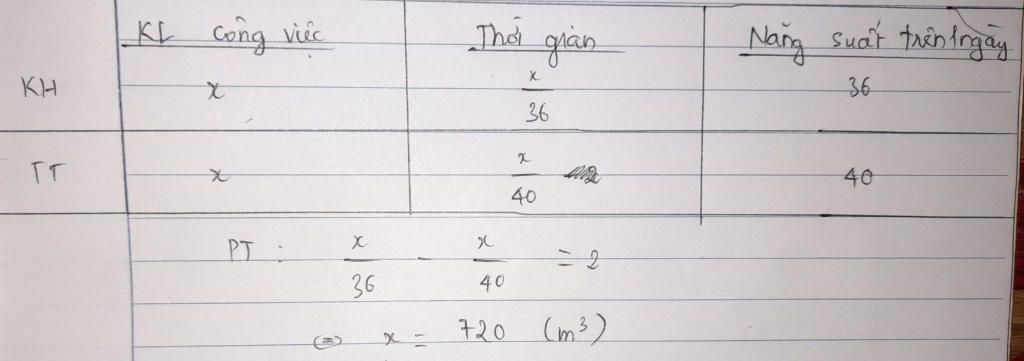 KL công việc Thời gian Năng suất trên 1 ngày
KH x x/36 36
TT x x/40 40
PT : x/36 - x/40 = 2
⇔ x = 720 (m³)